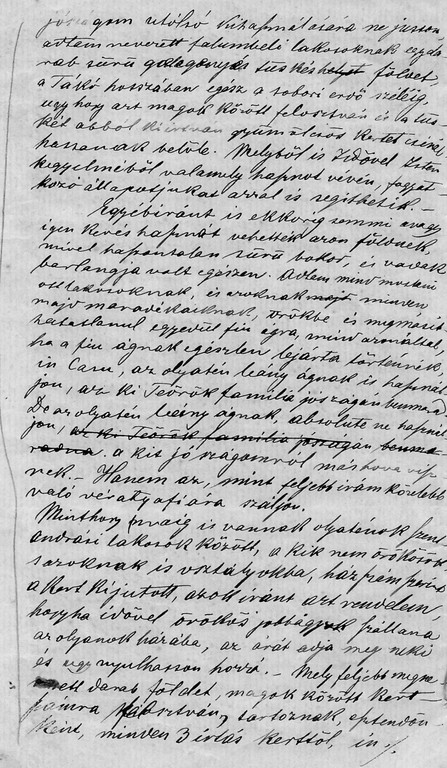 jószágom utólsó kihapnálására ne jusson
adtam nevezett falumbéli lakosoknak egy da-
rab sűrű galagonyás tüskés helyet földet
a Tákó hosszában egész a sobori erdő széléig,
úgy hogy azt magok között felosztván és a tüs-
két abból kiirtván gyümölcsös kertet csinál-
hassanak belőle. Melyből is Idővel Isten
kegyelméből valamely hapnot vévén, fogyat-
kozó állapotjukat azzal is segíthetik. –
Egyébiránt is ekkorig semmi avagy
igen kevés hapnát vehették azon földnek,
mivel hapontalan sűrű bokor, és vadak
barlangja volt egészen. Adtam mind mostani
ott lakosoknak, és azoknak minden
majd maradékaiknak, örökbe és megmásít-
hatatlanul egyedül fiu ágra, mind azonáltal
ha a fiu ágnak egészlen lejárta történnék,
in Casu, az olyatén leány ágnak is hapnál-
jon, az ki Teörök familia jószágán benmarad
De az olyatén leány ágnak, absolute ne hapnál-
jon, az ki Teörök familia jószágán benma-
radna. a kit jószágomról máshova visz-
nek. – Hanem az, mint feljebb irám közelebb
való vérátyafiára szálljon.
Minthogy pnvaig is vannak olyaténok Szent
andrási lakosok között, a kik nem örökösök
s azoknak is osztályokba, ház szám szerint
a kert kijutott, azok iránt azt rendelem,
hogyha idővel örökös jobbágyok szállana
az olyanok házába, az árát adja meg neki
és úgy nyulhasson hozzá. – Mely feljebb megne-
vezett darab földet, magok között kert
számra felosztván, tartoznak, esztendőn-
ként, minden 3 irtás kerttől, in